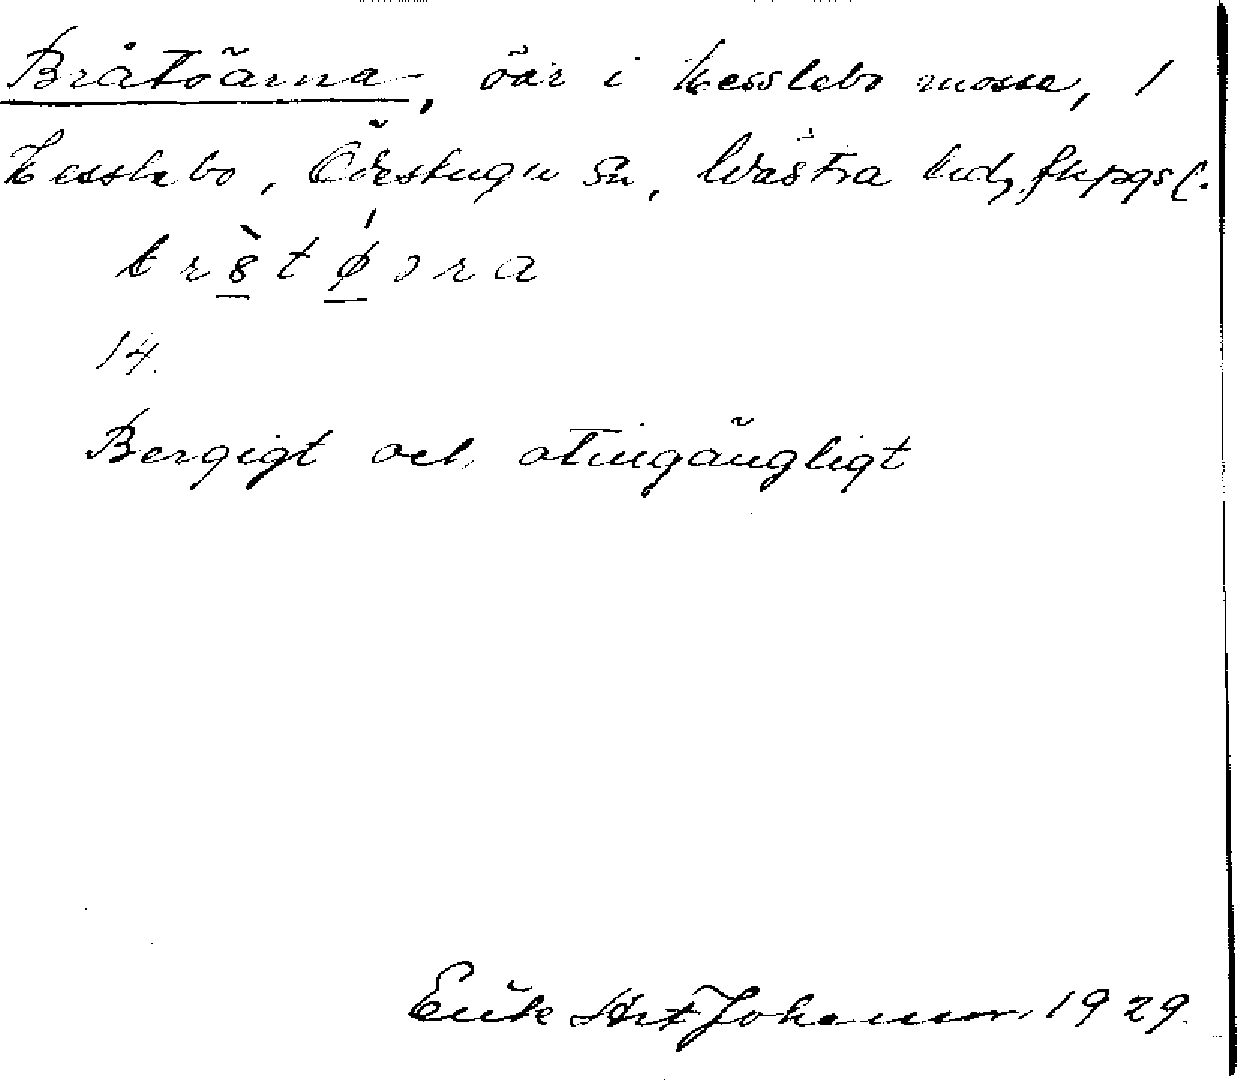 Bråtöarna, öar i Kesslebo mosse, 1
Kesslebo, Öreskugn sn, Västra hd, Jkpgs l.
br8tøɔra
14.
Bergigt och otingängligt
Erik Art Johansson 1929.